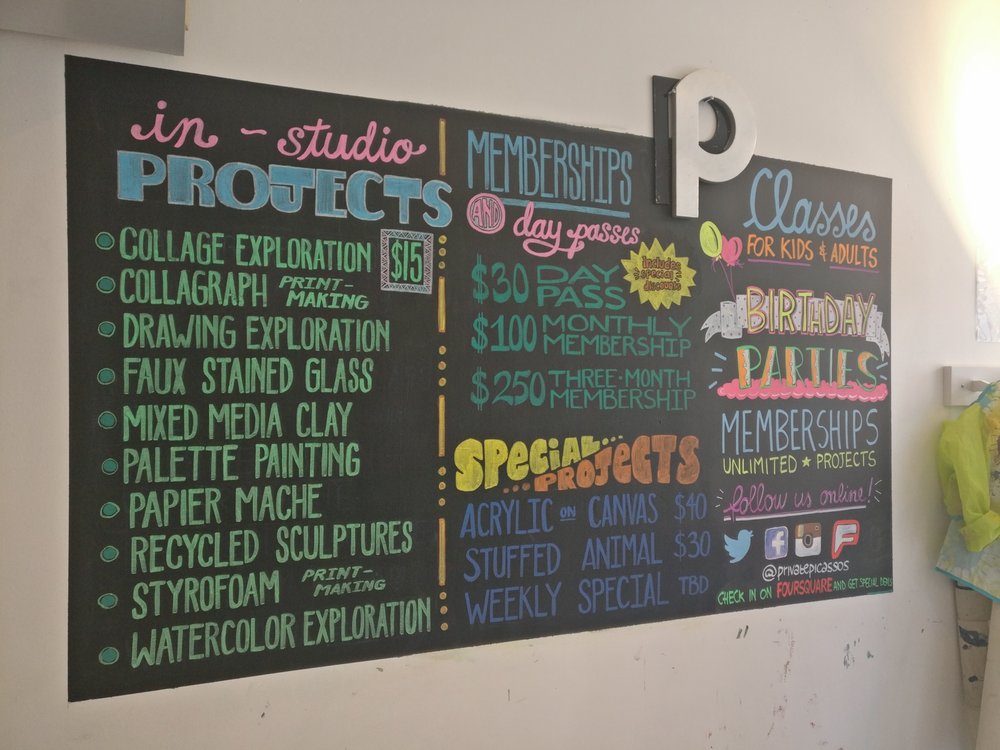 in - studio
PROJECTS
COLLAGE EXPLORATION $15
COLLAGRAPH PRINT-
MAKING
DRAWING EXPLORATION
FAUX STAINED GLASS
MIXED MEDIA CLAY
PALETTE PAINTING
PAPIER MACHE
RECYCLED SCULPTURES
STYROFOAM PRINT-
MAKING
WATERCOLOR EXPLORATION
MEMBERSHIPS
AND day passes
includes
special
discounts
$30 DAY
PASS
$100 MONTHLY
MEMBERSHIP
$250 THREE-MONTH
MEMBERSHIP
SPECIAL...
...PROJECTS
ACRYLIC ON CANVAS $40
STUFFED ANIMAL $30
WEEKLY SPECIAL TBD
P
Classes
FOR KIDS & ADULTS
BIRTHDAY
PARTIES
MEMBERSHIPS
UNLIMITED ★ PROJECTS
follow us online!
@privatepicassos
CHECK IN ON FOURSQUARE AND GET SPECIAL DEALS